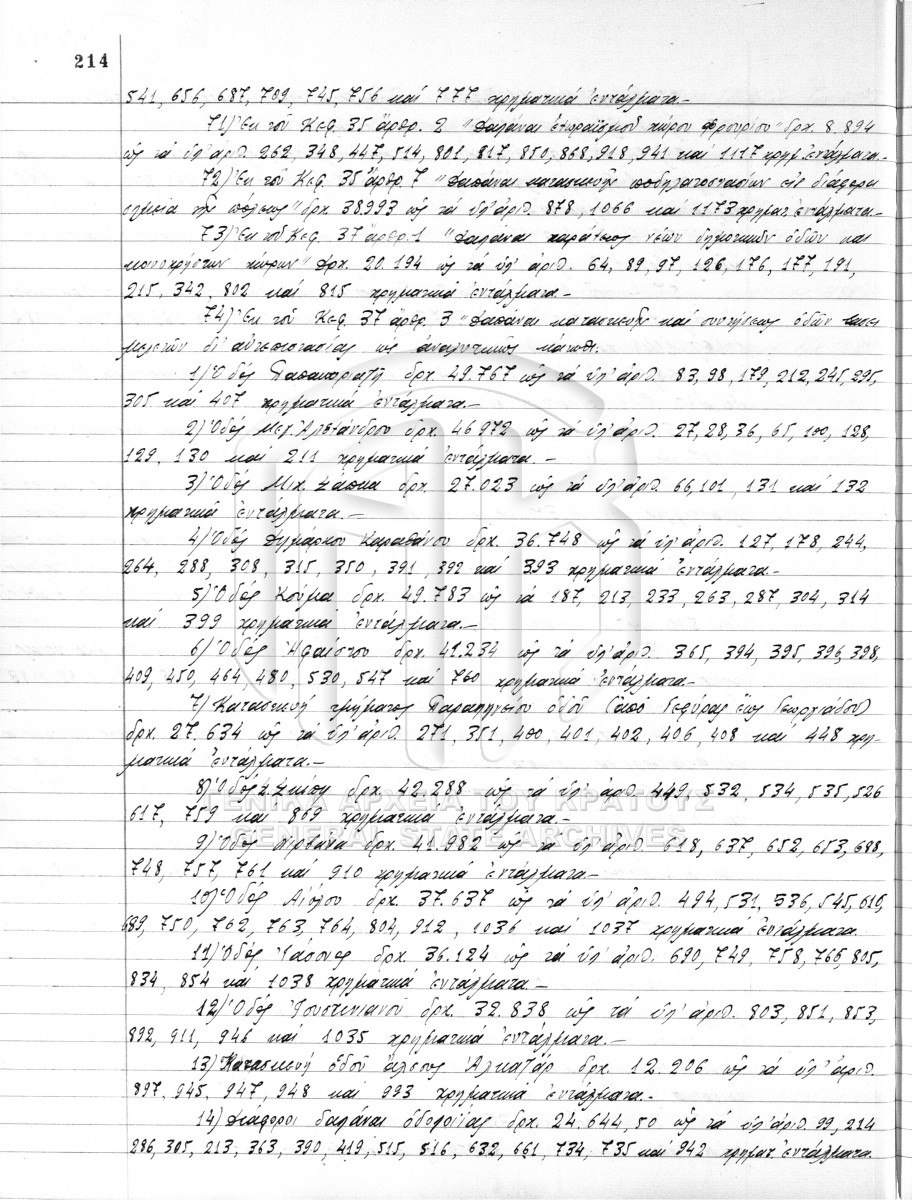 214
541, 656, 687, 709, 745, 756 καί 777 χρηματικά ἐντάλματα.-
71) Ἐκ τοῦ Κεφ. 35 ἄρθρ. 2 "Δαπάναι ἐξωραϊσμοῦ χώρου Φρουρίου" δρχ. 8.894
ὡς τά ὑπ' ἀριθ. 262, 348, 447, 514, 801, 817, 850, 868, 918, 941 καί 1117 χρημ. ἐντάλματα.-
72) Ἐκ τοῦ Κεφ. 35 ἄρθρ. 7 "Δαπάναι κατασκευῆς ποδηλατοστασίων εἰς διάφορα
σημεῖα τῆς πόλεως" δρχ. 38993 ὡς τά ὑπ' ἀριθ. 878, 1066 καί 1173 χρηματ. ἐντάλματα.-
73) Ἐκ τοῦ Κεφ. 37 ἄρθρ. 1 "Δαπάναι χαράξεως νέων δημοτικῶν ὁδῶν καί
κοινοχρήστων χώρων" δρχ. 20.194 ὡς τά ὑπ' ἀριθ. 64, 89, 97, 126, 176, 177, 191,
215, 342, 802 καί 815 χρηματικά ἐντάλματα.-
74) Ἐκ τοῦ Κεφ. 37 ἄρθρ. 3 "Δαπάναι κατασκευῆς καί συντηρήσεως ὁδῶν βάσει
μελετῶν δι' αὐτεπιστασίας ὡς ἀναλυτικῶς κάτωθι.
1) Ὁδός Παπακυριαζῆ δρχ. 49.767 ὡς τά ὑπ' ἀριθ. 83, 98, 179, 212, 245, 295,
305 καί 407 χρηματικά ἐντάλματα.-
2) Ὁδός Μεγ. Ἀλεξάνδρου δρχ. 46972 ὡς τά ὑπ' ἀριθ. 27, 28, 36, 65, 100, 128,
129, 130 καί 211 χρηματικά ἐντάλματα.-
3) Ὁδός Μιχ. Σάπκα δρχ. 27.023 ὡς τά ὑπ' ἀριθ. 66, 101, 131 καί 132
χρηματικά ἐντάλματα.-
4) Ὁδός Δημάρχου Καραθάνου δρχ. 36.748 ὡς τά ὑπ' ἀριθ. 127, 178, 244,
264, 288, 308, 315, 350, 391, 392 καί 393 χρηματικά ἐντάλματα.-
5) Ὁδός Κούμα δρχ. 49.783 ὡς τά 187, 213, 233, 263, 287, 304, 314
καί 399 χρηματικά ἐντάλματα.-
6) Ὁδός Ἡφαίστου δρχ. 41.234 ὡς τά ὑπ' ἀριθ. 365, 394, 395, 396, 398,
409, 450, 464, 480, 530, 547 καί 760 χρηματικά ἐντάλματα.-
7) Κατασκευή τμήματος Παραπηνείου ὁδοῦ (ἀπό Γεφύρας ἕως Γεωργιάδου)
δρχ. 27.634 ὡς τά ὑπ' ἀριθ. 271, 351, 400, 401, 402, 406, 408 καί 448 χρη-
ματικά ἐντάλματα.-
8) Ὁδός Σκύρου δρχ. 42.288 ὡς τά ὑπ' ἀριθ. 449, 532, 534, 535, 526
617, 759 καί 869 χρηματικά ἐντάλματα.-
9) Ὁδός δρχ. 41.982 ὡς τά ὑπ' ἀριθ. 618, 637, 652, 653, 688,
748, 757, 761 καί 910 χρηματικά ἐντάλματα.-
10) Ὁδός Αἰόλου δρχ. 37.637 ὡς τά ὑπ' ἀριθ. 494, 531, 536, 545, 619,
689, 750, 762, 763, 764, 804, 912, 1036 καί 1037 χρηματικά ἐντάλματα.
11) Ὁδός Ἰάσονος δρχ. 36.124 ὡς τά ὑπ' ἀριθ. 690, 749, 758, 765, 805,
834, 854 καί 1038 χρηματικά ἐντάλματα.-
12) Ὁδός Ἰουστινιανοῦ δρχ. 32.838 ὡς τά ὑπ' ἀριθ. 803, 851, 853,
892, 911, 946 καί 1035 χρηματικά ἐντάλματα.-
13) Κατασκευή ὁδοῦ ἄλσους Ἀλκαζάρ δρχ. 12.206 ὡς τά ὑπ' ἀριθ.
897, 945, 947, 948 καί 993 χρηματικά ἐντάλματα.-
14) Διάφοροι δαπάναι ὁδοποιΐας δρχ. 24.644,50 ὡς τά ὑπ' ἀριθ. 99, 214
286, 305, 213, 363, 390, 419, 515, 516, 632, 661, 734, 735 καί 942 χρηματ. ἐντάλματα.
ΓΕΝΙΚΑ ΑΡΧΕΙΑ ΤΟΥ ΚΡΑΤΟΥΣ
GENERAL STATE ARCHIVES